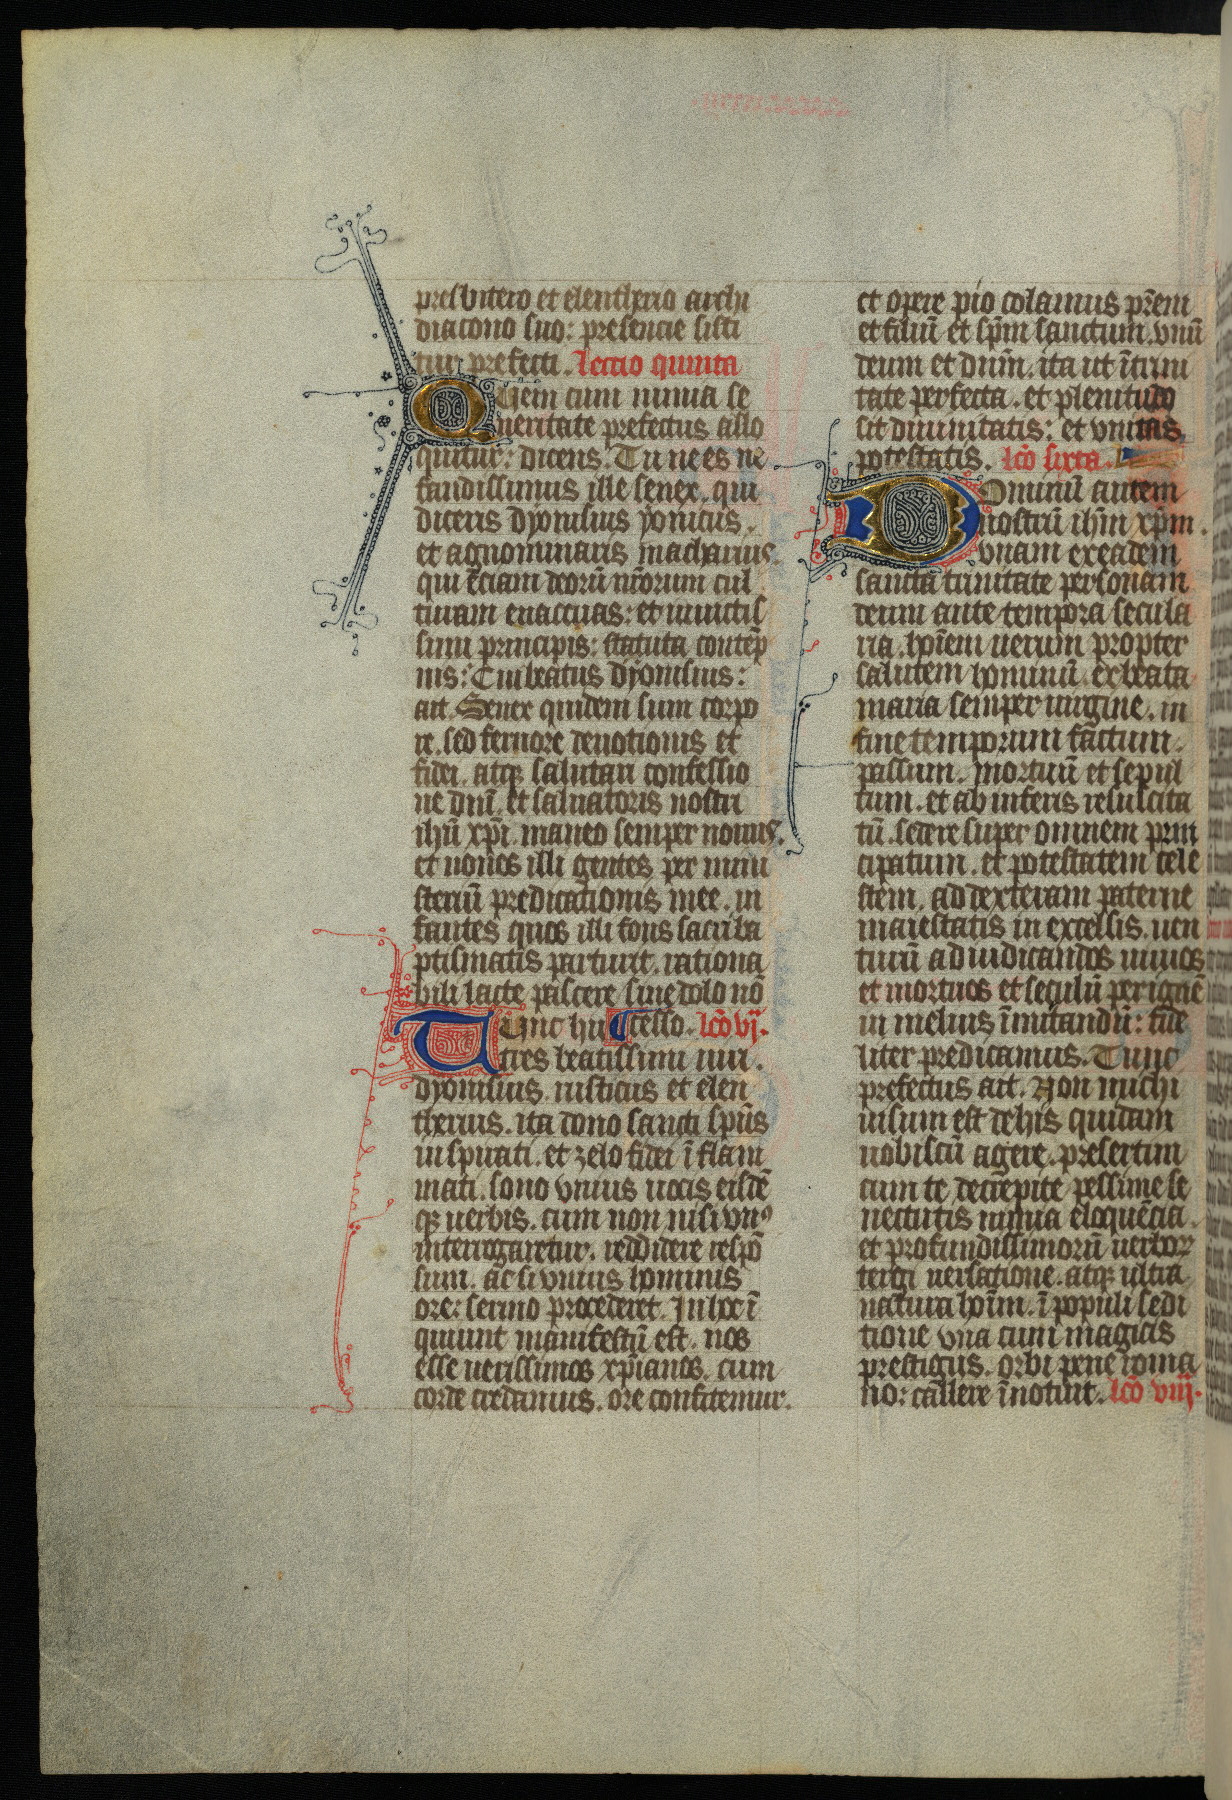 presbitero et eleutherio archi
diacono suo: presencie sisti
tur prefecti. lectio quinta
Quem cum nimia se
ueritate prefectus allo
quitur: dicens. Tu ne es ne
fandissimus ille senex. qui
diceris dyonisius yonicus.
et agnominaris macharius.
qui eciam deorū nr̄orum cul
turam euacuas: et inuictis
simi principis: statuta contēp
nis: Cui beatus dyonisius:
ait. Senex quidem sum corpo
re. sed feruore deuotionis et
fidei. atqꝫ salutari confessio
ne dnī. et saluatoris nostri
ihū xpī. maneo semper nouus.
et nouos illi gentes per mini
steriū predicationis mee. in
fantes quos illi fons sacri ba
ptismatis parturit. rationa
bili lacte pascere sine dolo nō
Tunc hii ¶cesso. lc̄o vj.
tres beatissimi uiri.
dyonisius. rusticus et eleu
therius. ita dono sancti sp̄us
inspirati. et zelo fidei ī flam
mati. sono vnius uocis eisdē
qꝫ uerbis. cum non nisi vnꝰ
interrogaretur. reddidere respō
sum. ac si vnius hominis
ore: sermo procederet. In hoc ī
quiunt manifestū est. nos
esse uerissimos xp̄ianos. cum
corde credamus. ore confitemur.
et opere pio colamus pr̄em
et filiū et sp̄m sanctum. vnū
deum et dn̄m. ita ut ī trini
tate perfecta. et plenitudo
sit diuinitatis: et vnitas
potestatis. lc̄o sixta.
Dominū autem
nostrū ihm̄ xp̄m.
vnam ex eadem
sancta trinitate personam
deum ante tempora secula
ria. hoīem uerum propter
salutem hominū ex beata
maria semper uirgine. in
fine temporum factum.
passum. mortuū et sepul
tum. et ab inferis resuscita
tū. sedere super omnem prin
cipatum. et potestatem cele
stem. ad dexteram paterne
maiestatis in excelsis. uen
turū ad iudicandos uiuos
et mortuos et seculū per ignē
in melius īmutandū: fide
liter predicamus. Tunc
prefectus ait. Non michi
uisum est de his quidam
uobiscū agere. presertim
cum te decrepite pessime se
nectutis nimia eloquēcia.
et profundissimorū uerboꝝ
tergi uersatione. atqꝫ ultra
natura hoīm. ī populi sedi
tione vna cum magicis
prestigiis. orbi pene roma
no: callere īnotuit. lc̄o viij.